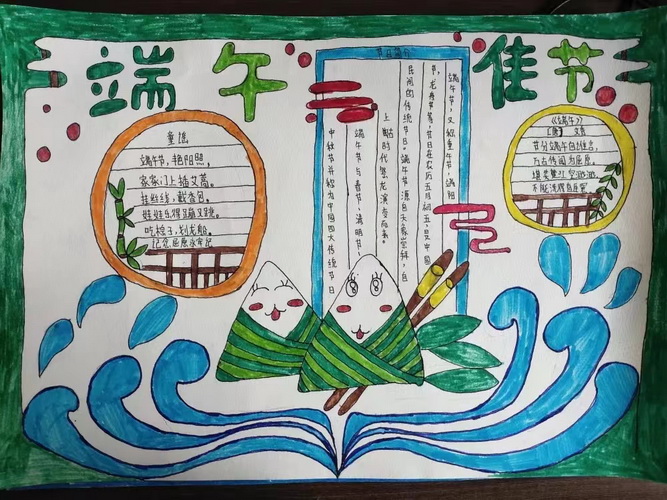 端午佳节
童谣
端午节,艳阳照,
家家门上插艾蒿。
挂丝线,戴香包,
娃娃乐得蹦又跳。
吃粽子,划龙船,
记念屈原永牢记
节日简介
端午节,又称重午节,端阳
节,龙舟节等,节日在农历五月初五,是中国
民间的传统节日。端午节源自天象崇拜,由
上古时代祭龙演变而来。
端午节与春节,清明节,
中秋节并称为中国四大传统节日
《端午》
【唐】文秀
节分端午自谁言,
万古传闻为屈原。
堪笑楚江空渺渺,
不能洗得直臣冤